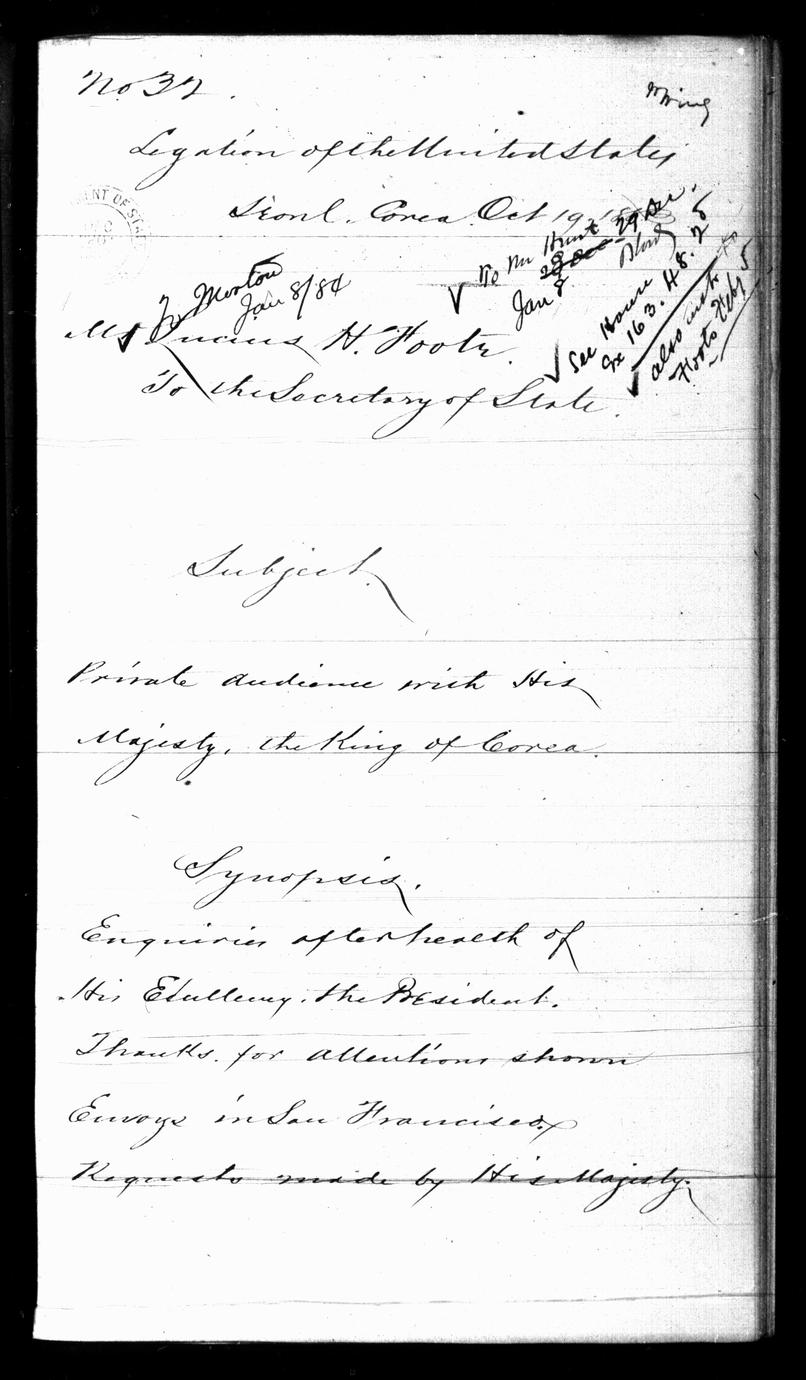 No 32.
Legation of the United States
Seoul. Corea Oct 19.
To Morton
Jan 8/84
To Mr Hunt
29 Dec.
Jan 8
See House
Ex 163. 48. 2
also
Foote Feby 5
Mr Lucius H. Foote.
To the Secretary of State.
Subject
Private audience with His
Majesty, the King of Corea.
Synopsis.
Enquiries after health of
His Exellency, the President.
Thanks. for attentions shown
Envoys in San Francisco.
Requests made by His Majesty.